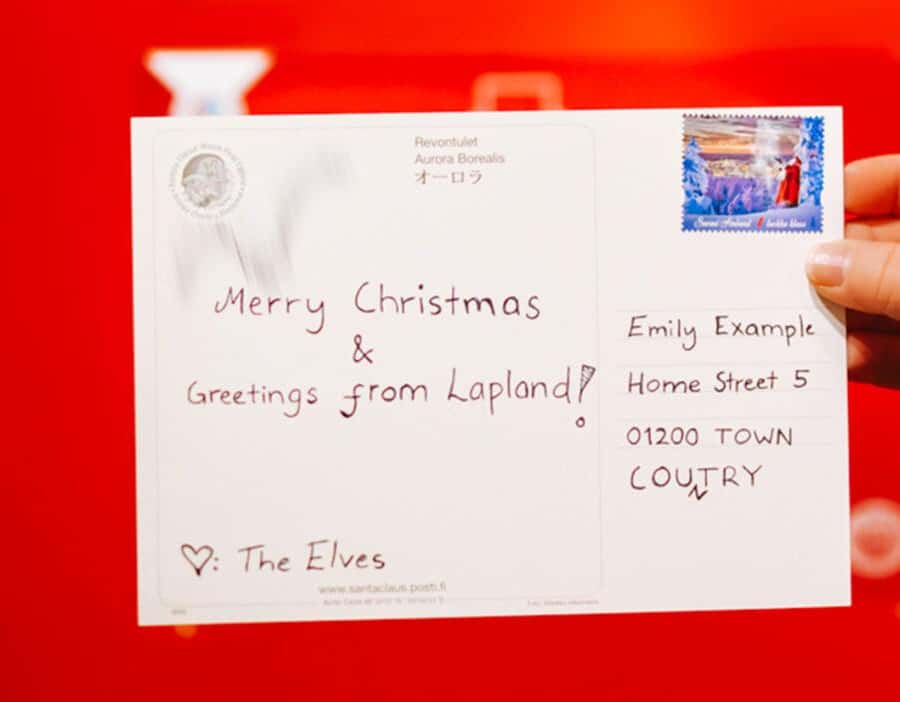 Revontulet
Aurora Borealis
オーロラ
Merry Christmas
&
Greetings from Lapland!
♡: The Elves
www.santaclaus.posti.fi
Emily Example
Home Street 5
01200 TOWN
COUNTRY